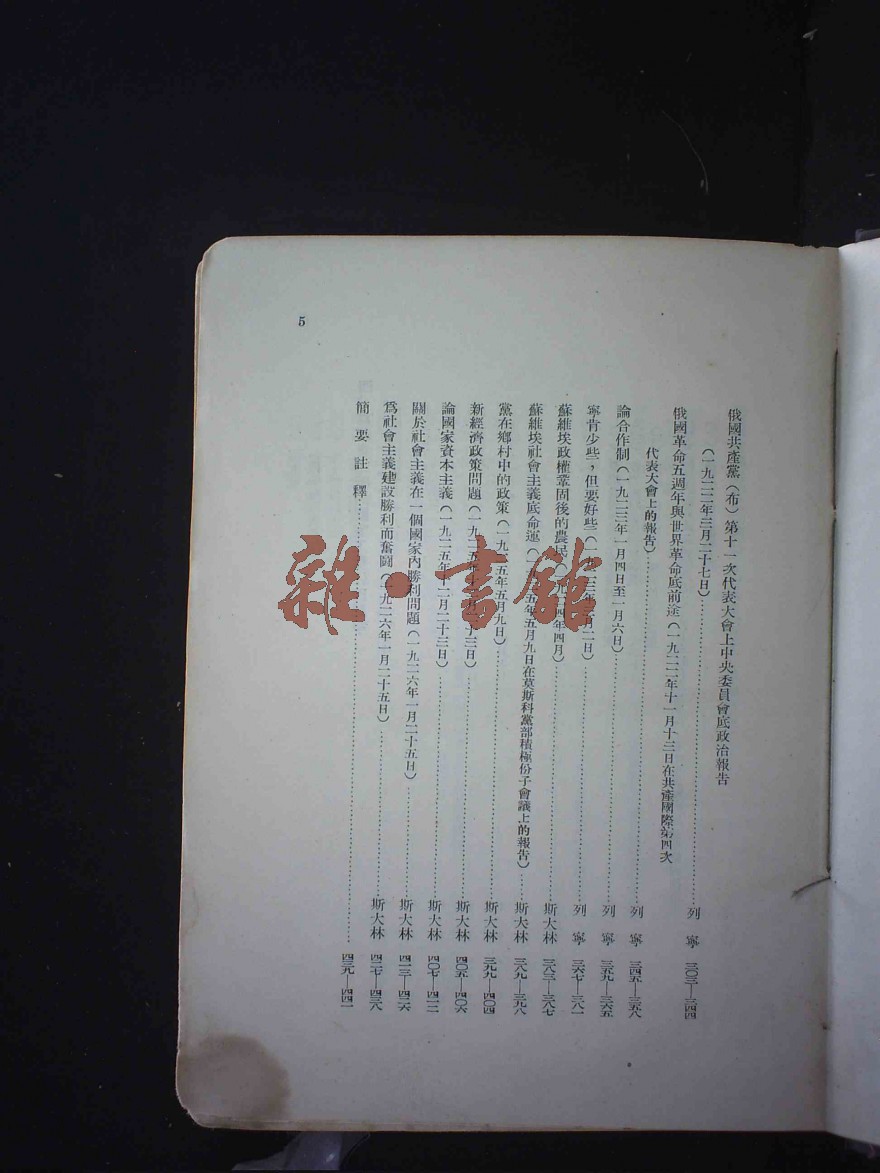 俄國共產黨(布)第十一次代表大會上中央委員會底政治報告
(一九二二年三月二十七日)……列 寧 三〇三—三四四
俄國革命五週年與世界革命底前途(一九二二年十一月十三日在共產國際第四次
代表大會上的報告)……列 寧 三四五—三五八
論合作制(一九二三年一月四日至一月六日)……列 寧 三五九—三六五
寧肯少些,但要好些(一九二三年三月二日)……列 寧 三六七—三八一
蘇維埃政權鞏固後的農民(一九二四年四月)……斯大林 三八三—三八七
蘇維埃社會主義底命運(一九二五年五月九日在莫斯科黨部積極份子會議上的報告)……斯大林 三八九—三九八
黨在鄉村中的政策(一九二五年五月九日)……斯大林 三九九—四〇四
新經濟政策問題(一九二五年 月二十三日)……斯大林 四〇五—四〇六
論國家資本主義(一九二五年十二月二十三日)……斯大林 四〇七—四一二
關於社會主義在一個國家內勝利問題(一九二六年一月二十五日)……斯大林 四一三—四二六
為社會主義建設勝利而奮鬪(一九二六年一月二十五日)……斯大林 四二七—四三八
簡要註釋……四三九—四四一
5
雜·書館